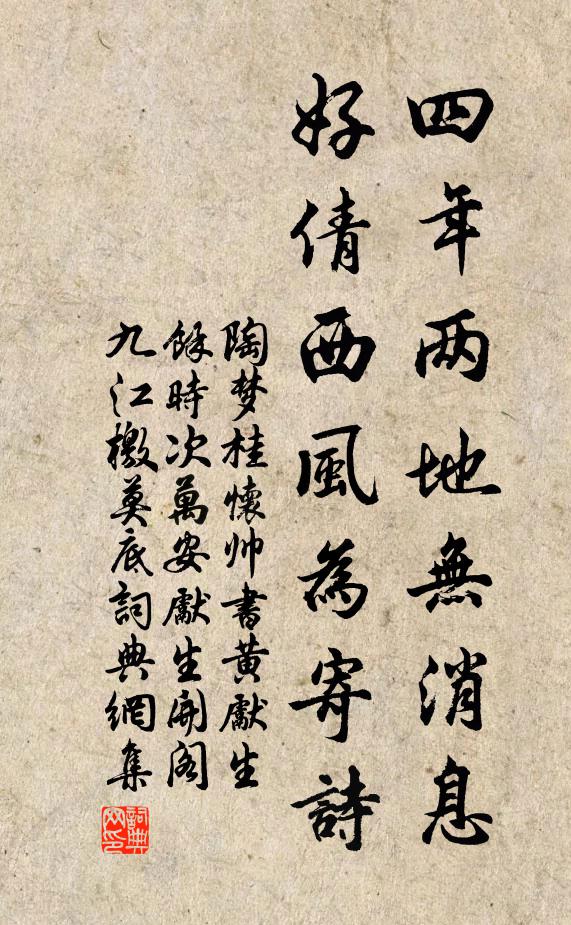 四年两地無消息
好倩西風為寄詩
陶梦桂懷帅書黄獻生
餘時次萬安獻生開阁
九江檄莫底詞典網集
詞典
网印